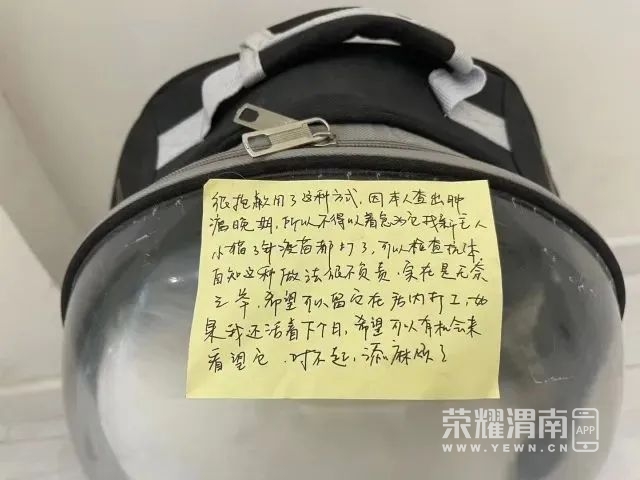 很抱歉用了这种方式,因本人查出肿
瘤晚期,所以不得以着急为它找新主人
小猫3针疫苗都打了,可以检查抗体
自知这种做法很不负责,实在是无奈
之举,希望可以留它在店内打工,如
果我还活着下个月,希望可以有机会来
看望它,对不起,添麻烦了
荣耀渭南 APP
WWW.YEWN.CN